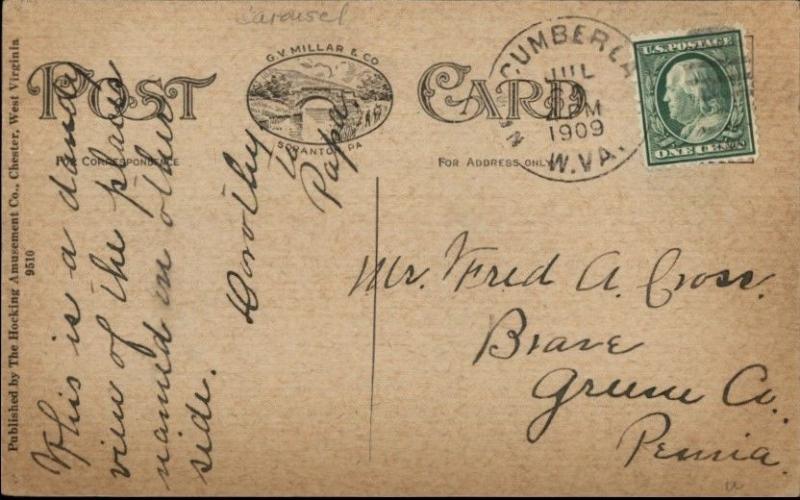 Carousel
POST CARD
G.V. MILLAR & CO
SCRANTON, PA
FOR CORRESPONDENCE
FOR ADDRESS ONLY
NEW CUMBERLA
JUL
PM
1909
W.VA.
U.S. POSTAGE
ONE CENT
Published by The Hocking Amusement Co., Chester, West Virginia
9510
This is a dandy
view of the places
named on other
side.
Dorothy
to
Papa.
Mr. Fred A. Cross.
Brave
Greene Co.
Penna.